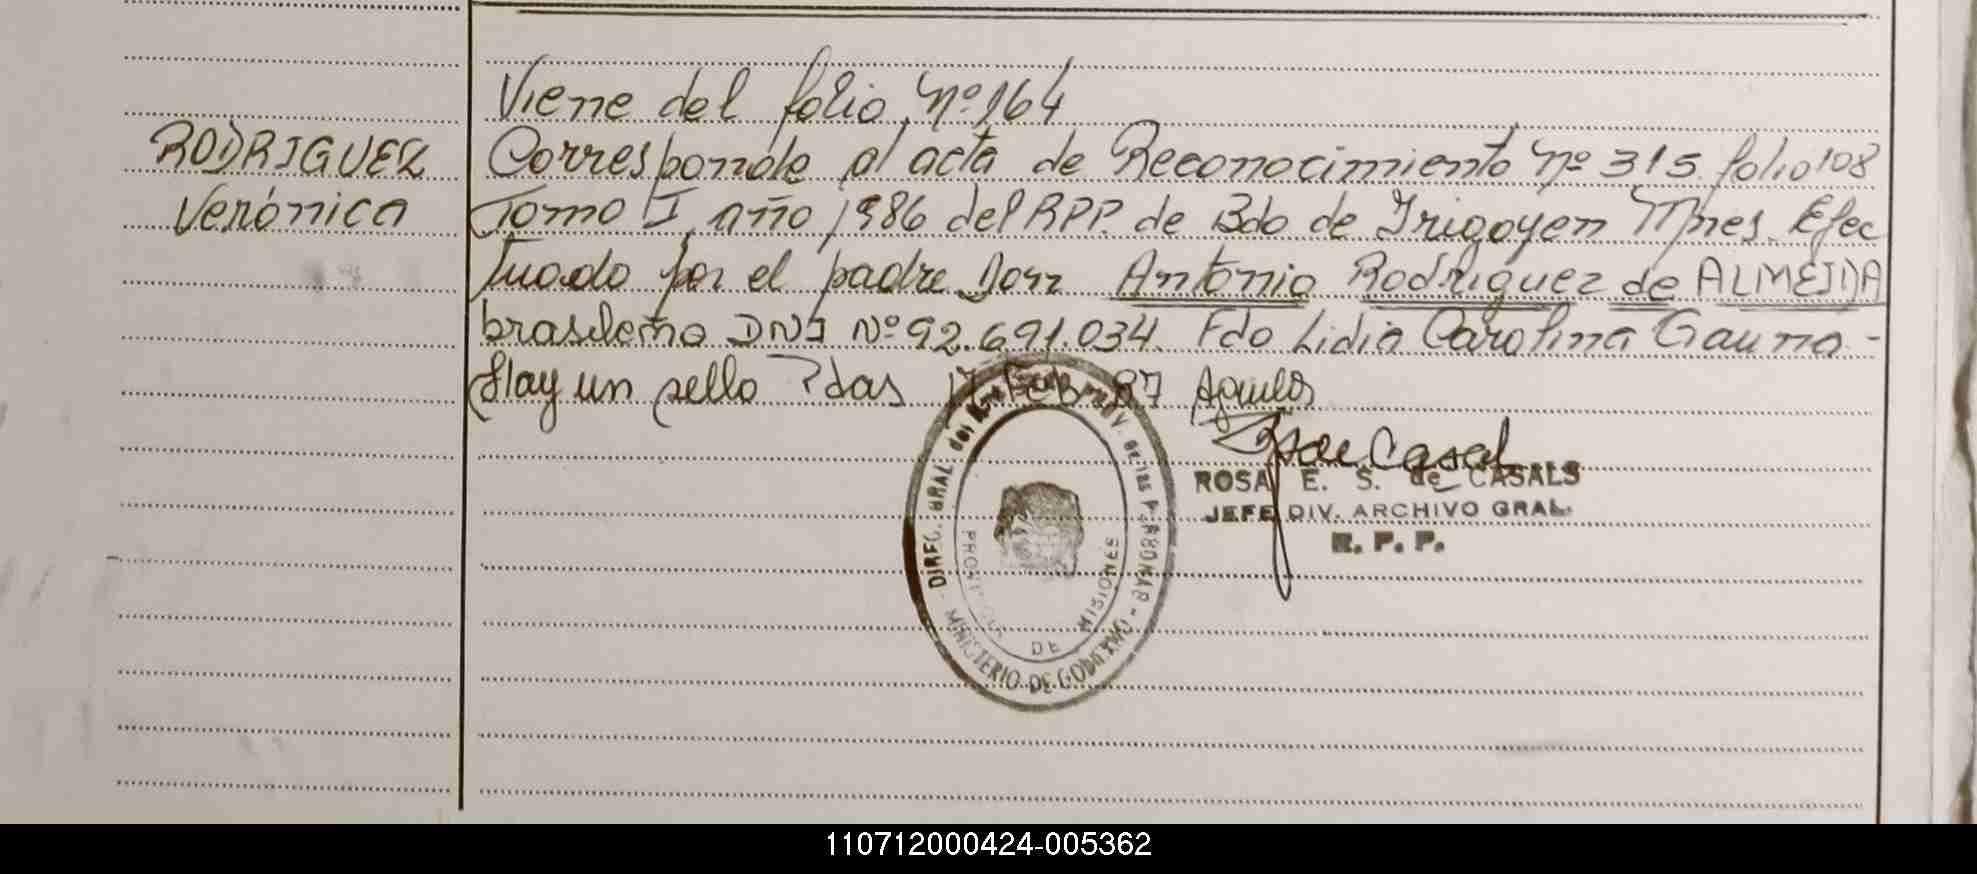 Viene del folio Nº 164
RODRIGUEZ
Verónica
Corresponde al acta de Reconocimiento Nº 315 folio 108
Tomo I año 1986 del RPP. de Bdo de Irigoyen Mnes. Efec
tuado por el padre Don Antonio Rodriguez de ALMEIDA
brasileño DNI Nº 92.691.034. Fdo Lidia Carolina Gauna -
Hay un sello Pdas 17 Feb 87
ROSA E. S. de CASALS
JEFE DIV. ARCHIVO GRAL.
R. P. P.
DIREC. GRAL. del de las PERSONAS
MINISTERIO DE GOBIERNO
PROVINCIA DE MISIONES
110712000424-005362